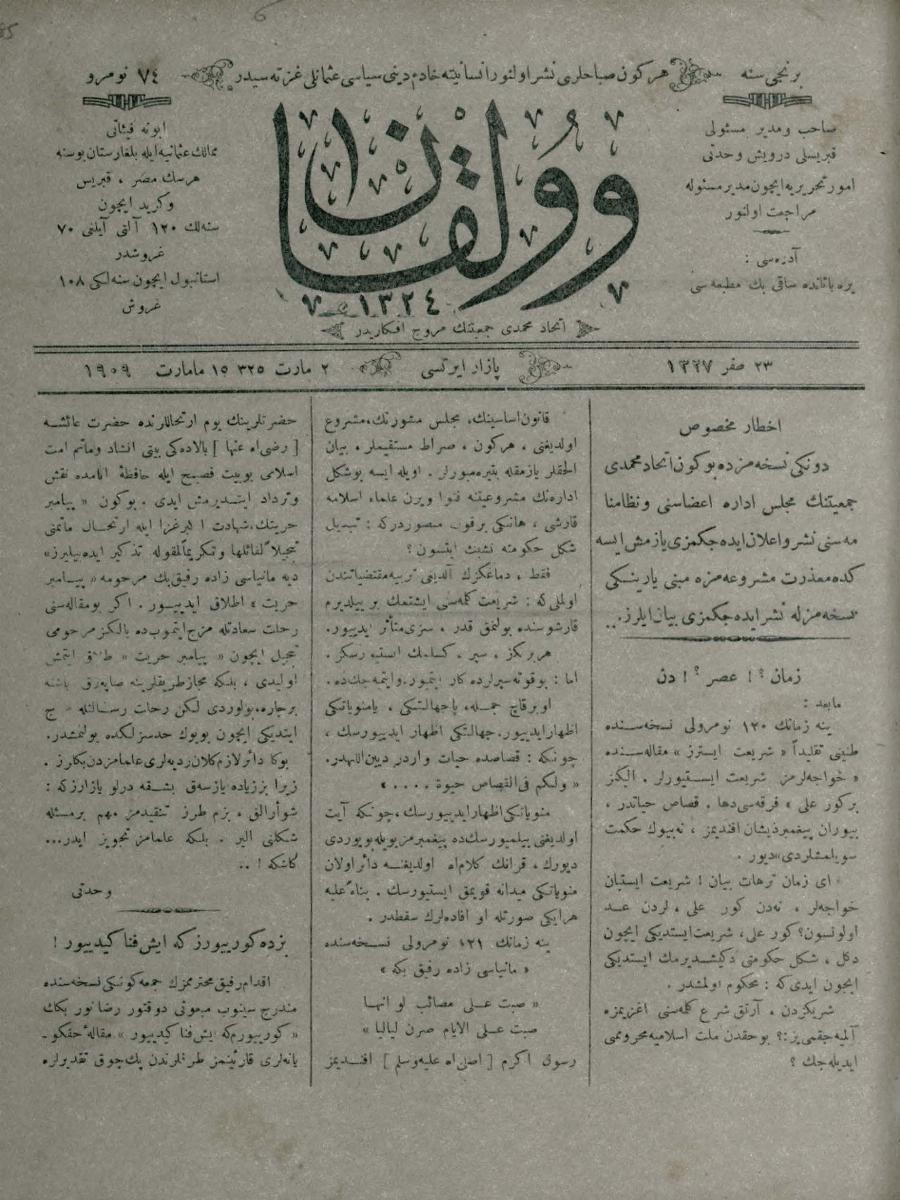 برنجی سنه
هر کون صباحلری نشر اولنور انسانیته خادم دینی سیاسی عثمانلی غزته سیدر
٧٤ نومرو
صاحب و مدیر مسئولی
قبریسلی درویش وحدتی
امور تحریریه ایچون مدیر مسئوله
مراجعت اولنور
آدره سی :
یره باتانده ساقی بك مطبعه سی
وولقان
١٣٢٤
اتحاد محمدی جمعیتنك مروج افکاریدر
ابونه فیئاتی
ممالك عثمانیه ایله بلغارستان بوسنه
هرسك مصر ، قبریس
وکرید ایچون
سنه لك ١٢٠ آلتی آیلنی ٧٠
غروشدر
استانبول ایچون سنه لکی ١٠٨
غروش
٢٣ صفر ١٣٢٧
پازار ایرتسی
٢ مارت ٣٢٥ ١٥ مامارت ١٩٠٩
اخطار مخصوص
دونکی نسخه مزده بوکون اتحاد محمدی
جمعیتنك مجلس اداره اعضاسنی ونظامنا
مه سنی نشر واعلان ایده جکمزی یازمش ایسه
کده معذرت مشروعه مزه مبنی یارینکی
نسخه مزله نشر ایده جکمزی بیان ایلرز...
زمان ؟! عصر ؟! دن
مابعد :
ینه زمانك ١٢٠ نومرولی نسخه سنده
طنینی تقلیداً « شریعت ایسترز » مقاله سنده
« خواجه لرمز شریعت ایستیورلر . الکز
بر کور علی » فرقه سی دها . قصاص حیاتدر ،
بیوران پیغمبر ذیشان افندیمز ، نه بیوك حکمت
سویلمشلردی » دیور .
ای زمان ترهات بیان ! شریعت ایستیان
خواجه لر ، نه دن کور علی ، لردن عد
اولونسون؟ کور علی ، شریعت ایستدیکی ایچون
دکل ، شکل حکومتی دکیشدیرمك ایستدیکی
ایچون ایدی که : محکوم اولمشدر .
شریکزدن ، آرتق شرع کلمه سنی اغزیمزه
آلمیه جقمی یز ؟ بو حقدن ملت اسلامیه محرومی
ایدیله جك ؟
قانون اساسینك ، مجلس مشورتك ، مشروع
اولدیغنی ، هر کون ، صراط مستقیملر . بیان
الحقلر یازمقله بتیره میورلر . اویله ایسه بوشکل
اداره نك مشروعیتنه فتوا ویرن علماء اسلامه
قارشی ، هانکی بر قوت متصور در که : تبدیل
شکل حکومته تشبث ایتسون ؟
فقط ، دماغکزك آلدینی تربیه مقتضیاتندن
اولملی که : شریعت کلمه سنی ایشتمك بر ییلدیرم
قارشوسنده بولنمق قدر ، سزی متأثر ایدییور .
هر برکز ، سیر ، کسلمك استیورسکز .
اما : بوقوته سیرلرده کار ایتمیور . وایتمه جك ده .
او بر قاچ جمله ، یا جهالتکی ، یا منویاتکی
اظهار ایدییور . جهالتکی اظهار ایدییورسك ،
چونکه : قصاصده حیات واردر دیین اللهدر .
« ولکم فی القصاص حیوة . . . . »
منویاتکی اظهار ایدییورسك ، چونکه آیت
اولدیغنی بیلمیورسك ده پیغمبرمز بویله بویوردی
دیورك ، قرانك کلام اﷲ اولدیغنه دائر اولان
منویاتکی میدانه قویمق ایستیورسك . بناءً علیه
هر ایکی صورتله او افاده لرك سقطدر .
ینه زمانك ١٢١ نومرولی نسخه سنده
« مانیاسی زاده رفیق بکه »
« صبت علی مصائب لو انها
صبت علی الایام صرن لیالیا »
رسول اکرم [ صلی اﷲ علیه وسلم ] افندیمز
حضرتلرینك یوم ارتحاللرنده حضرت عائشه
[ رضی اﷲ عنها ] بالاده کی بیتی انشاد وماتم امت
اسلامی بو بیت فصیح ایله حافظهٔ انامده نقش
وترداد ایتدیرمش ایدی . بوکون « پیامبر
حریتك ، شهادت ارتحال ماتمنی
تذکیر ایده بیلیرز »
دیه مانیاسی زاده رفیق بك مرحومه « پیامبر
حریت » اطلاق ایدییور . اکر بو مقاله سنی
رحلت سعادتله مزج ایتمیوب ده یالکز مرحومی
تبجیل ایچون « پیامبر حریت » اطلاق ایتمش
اولیدی ، بلکه مجاز طریقلرینه صاپه رق باشنه
بر چاره ، بولوردی لکن رحلت رسالتله مزج
ایتدیکی ایچون بویوك حدسزلکده بولنمشدر .
بوکا دائر لازم کلان ردیه لری علمامزدن بکلرز .
زیرا بز زیاده یازسه ق بشقه درلو یازارز که :
شو آرالق ، بزم طرز تنقیدمز مهم بر مسئله
شکلنی الیر . بلکه علمامز تجویز ایدر...
کاشکه ! ..
وحدتی
بزده کورییورز که ایش فنا کیدییور !
اقدام رفیق محترممزك جمعه کونکی نسخه سنده
مندرج سینوب مبعوثی دوقتور رضا نور بکك
« کورییورم که ایش فنا کیدییور » مقاله حقکو-
یانه لری قارئینمز طرفلرندن پك چوق تقدیرلره